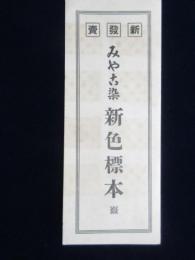 新發賣
みや古染
新色標本